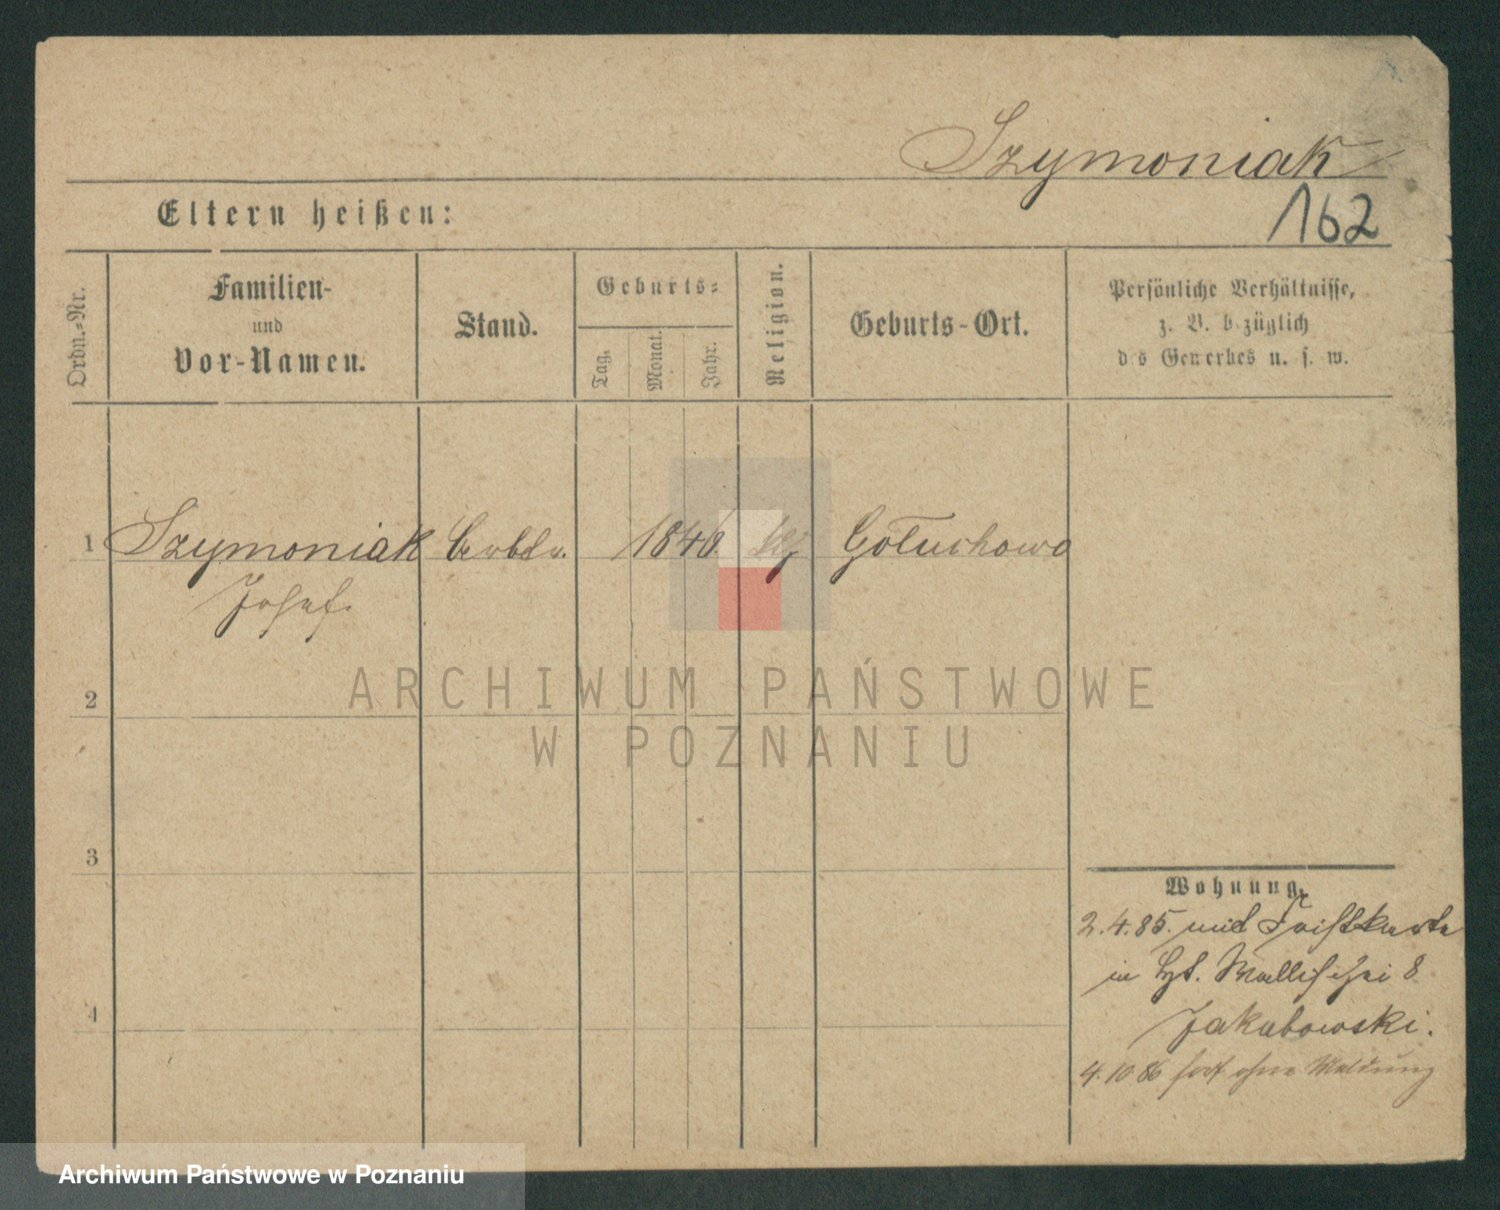 Szymoniak
162
Eltern heißen:
Ordn.-Nr.
Familien-
und
Vor-Namen.
Stand.
Geburts-
Tag.
Monat.
Jahr.
Religion.
Geburts-Ort.
Persönliche Verhältnisse,
z. B. bezüglich
des Gewerbes u. s. w.
1 Szymoniak 1846. Gołuchowo
Josef.
2
3
4
Wohnung.
2.4.85. mit
in 8
Jakubowski.
4.10 86 fort ohne Meldung
ARCHIWUM PAŃSTWOWE
W POZNANIU
Archiwum Państwowe w Poznaniu